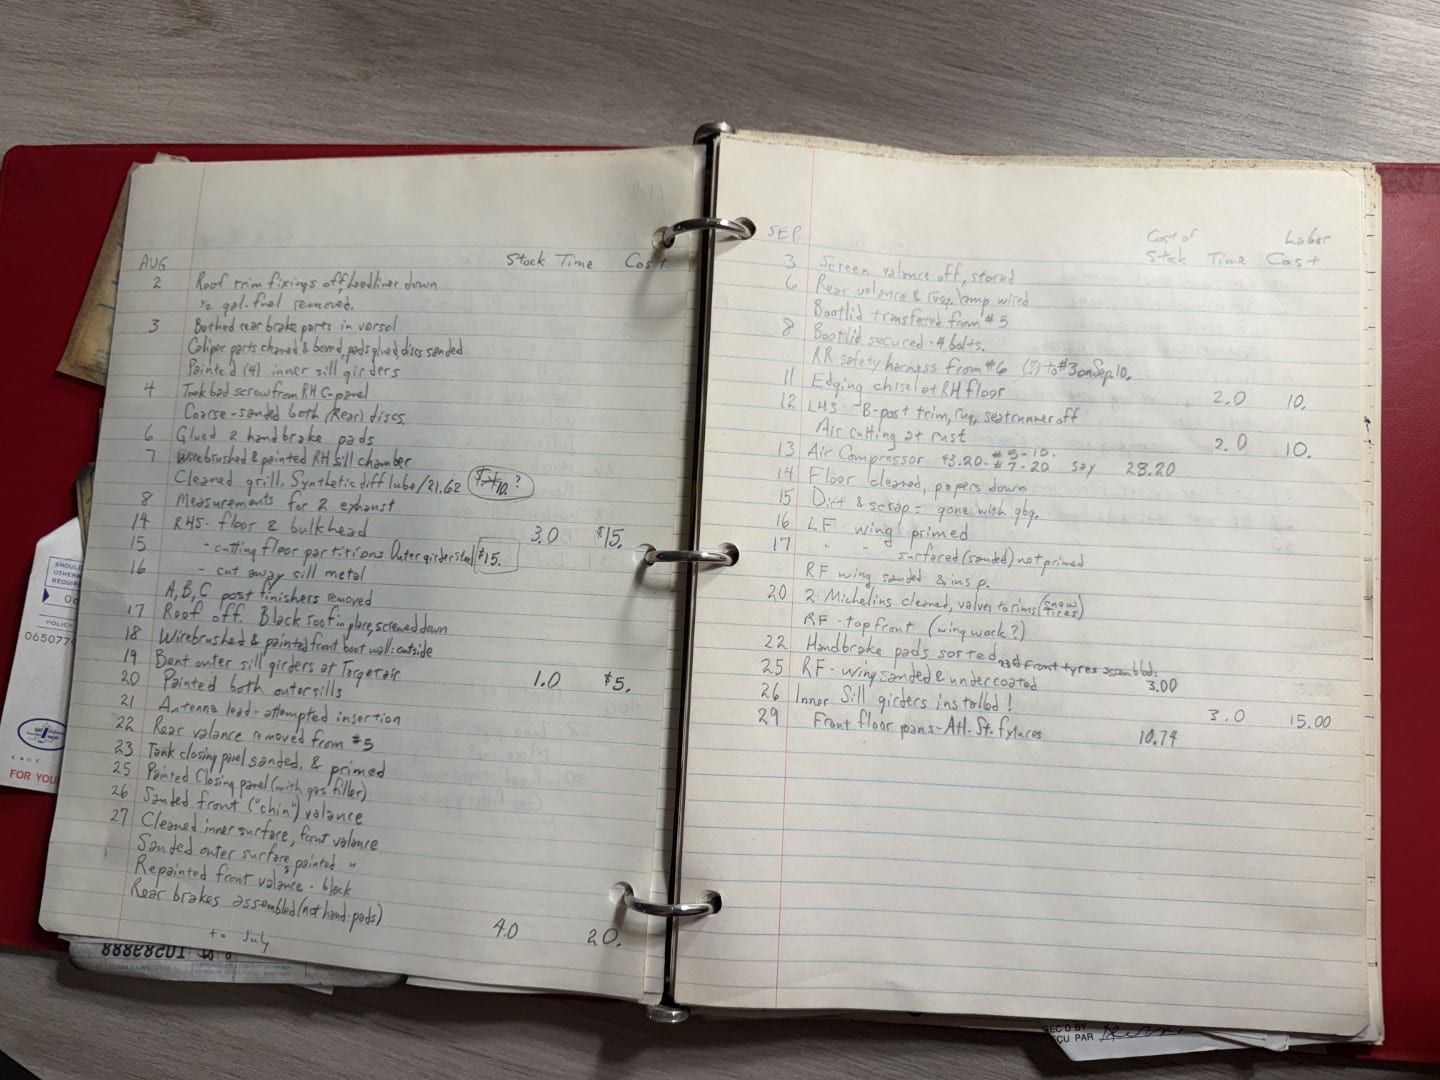 AUG Stock Time Cost
2 Roof trim fixings off, headliner down
½ gal. fuel removed.
3 Bathed rear brake parts in varsol
Caliper parts cleaned & boxed, pads glued, discs sanded
Painted (4) inner sill girders
4 Took bad screw from RH C-panel
Coarse-sanded both (Rear) discs.
6 Glued 2 handbrake pads
7 Wirebrushed & painted RH sill chamber
Cleaned grill. Synthetic diff lube/21.62 10. ?
8 Measurements for 2 exhaust
14 RHS- floor & bulkhead 3.0 $15.
15 - cutting floor partitions Outer girder steel $15.
16 - cut away sill metal
A, B, C post finishers removed
17 Roof off. Black roof in place, screwed down
18 Wirebrushed & painted front boot wall: outside
19 Bent outer sill girders at Targetair 1.0 $5.
20 Painted both outer sills
21 Antenna lead - attempted insertion
22 Rear valance removed from #5
23 Tank closing panel sanded. & primed
25 Painted Closing panel (with gas filler)
26 Sanded front ("chin") valance
27 Cleaned inner surface, front valance
Sanded outer surface, painted "
Repainted front valance - black
Rear brakes assembled (not hand-pads)
4.0 20.
to July
SEP Cost of Stock Time Labor Cost
3 Screen valance off, stored
6 Rear valance & lamp wired
Bootlid transferred from #5
8 Bootlid secured - 4 bolts.
RR safety harness from #6 (?) to #3 on Sep 10.
11 Edging chisel at RH floor 2.0 10.
12 LHS - B-post trim, rug, seat runner off
Air cutting at rust 2.0 10.
13 Air Compressor 43.20 - #5-15. #7-20 say 28.20
14 Floor cleaned, papers down
15 Dirt & scrap - gone with gbg.
16 LF wing primed
17 " " surfaced (sanded) not primed
RF wing sanded & insp.
20 2 Michelins cleaned, valves to rims (snow tires)
RF - top front (wing work?)
22 Handbrake pads sorted 23d front tyres assembled.
25 RF - wing sanded & undercoated 3.00
26 Inner Sill girders installed! 3.0 15.00
29 Front floor pans - Atl. St. fixtures 10.74
SHOULD
OTHER
REQUIR
POLICY
065077
FOR YOU
REC'D BY